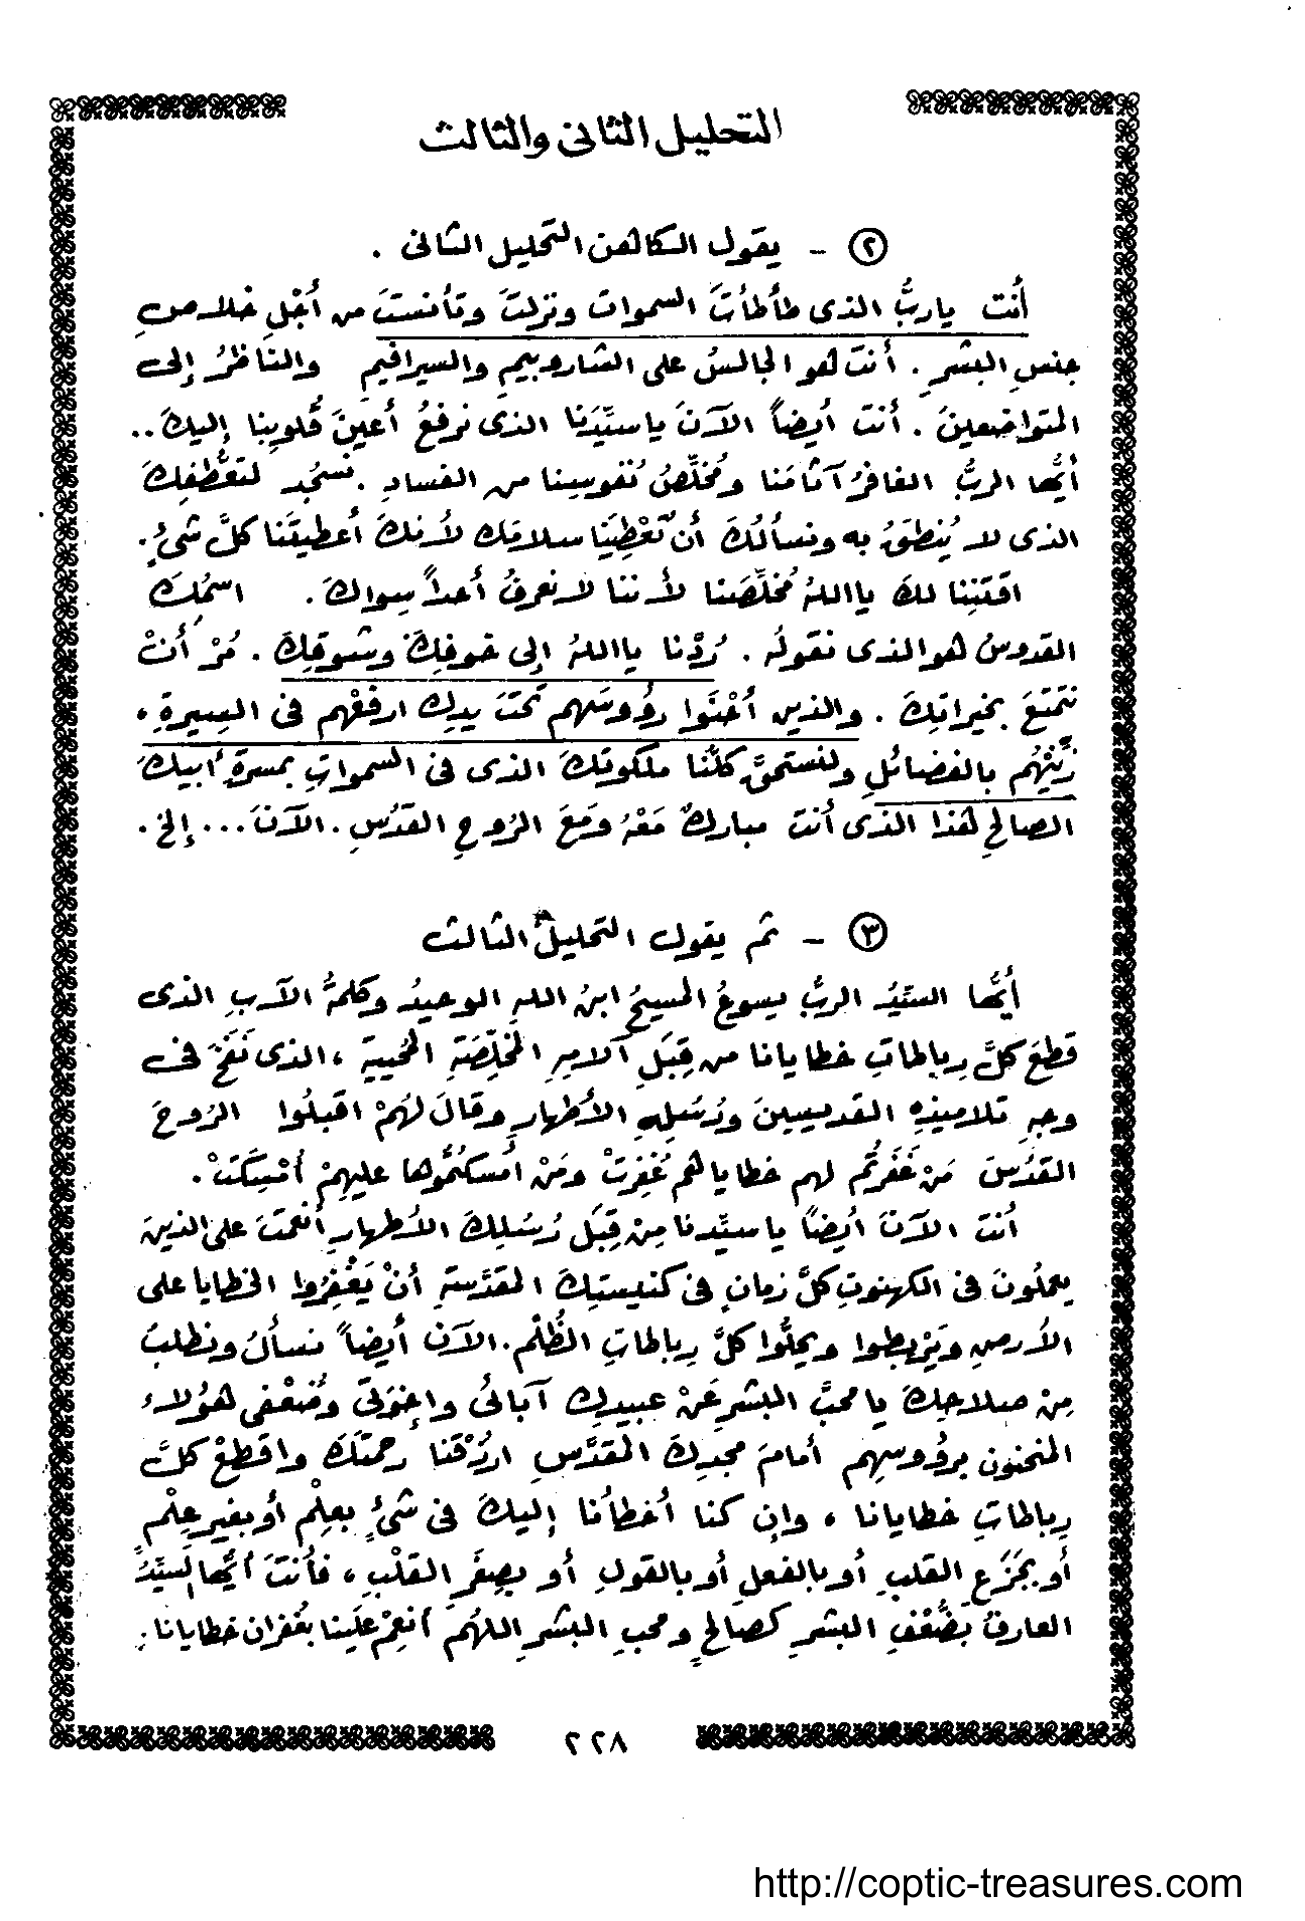 التحليل الثانى والثالث
② - يقول الكاهن التحليل الثانى .
أنت ياربُّ الذى طأطأتَ السموات ونزلتَ وتأنستَ من أجْلِ خلاصِ
جنسِ البشرِ . أنتَ هو الجالسُ على الشاروبيمِ والسيرافيمِ والناظرُ إلى
المتواضعينَ . أنتَ أيضاً الآنَ ياسيِّدَنا الذى نرفعُ أعينَ قُلوبِنا إليكَ ..
أيُّها الربُّ الغافرُ آثامَنا ومُخلِّصُ نُفوسِنا من الفسادِ . نسجُد لتعَطُّفِكَ
الذى لا يُنطَقُ به ونسألُكَ أن تُعْطِيَنا سلامَك لأنكَ أعطيتَنا كلَّ شئٍ .
اقتَنِنا لكَ يااللهُ مُخلِّصَنا لأننا لانعرفُ أحداً سِواكَ . اسمُكَ
القدوسُ هو الذى نقولُه . رُدَّنا يااللهُ إلى خوفِكَ وشوقِكَ . مُرْ أنْ
نتمتعَ بخيراتِكَ . والذين أحْنَوا رؤُوسَهم تحتَ يدِك ارفعْهم فى السِيرةِ ،
زيِّنْهُم بالفضائلِ ولنستحقَّ كلُّنا ملكوتكَ الذى فى السمواتِ بمسرةِ أبيكَ
الصالحِ هذا الذى أنتَ مباركٌ مَعَهُ ومَعَ الرُوحِ القدُسِ . الآنَ ... إلخ .
③ - ثم يقول التحليل الثالث
أيُّها السيِّدُ الربُّ يسوعُ المسيحُ ابنُ اللهِ الوحيدُ وكلمةُ الآبِ الذى
قطعَ كلَّ رِباطاتِ خطايانا من قِبَلِ آلامِهِ المُخلِّصَةِ المُحييةِ ، الذى نَفَخَ فى
وجهِ تلاميذِهِ القديسينَ ورُسُلِهِ الأطهارِ وقالَ لهُمْ اقبلُوا الرُوحَ
القدُسَ مَنْ غَفَرتُم لهم خطاياهم غُفِرَتْ ومَنْ أمسكتُمُوها عليهِمْ أُمْسِكَتْ .
أنتَ الآنَ أيضاً ياسيِّدنا مِنْ قِبَلِ رُسُلِكَ الأطهارِ أنعمتَ على الذينَ
يعملُونَ فى الكهنوتِ كلَّ زمانٍ فى كنيستِكَ المقدَّسةِ أنْ يَغْفِرُوا الخطايا على
الأرضِ ويَرْبِطوا ويحلُّوا كلَّ رِباطاتِ الظُّلْمِ . الآنَ أيضاً نسألُ ونطلبُ
مِنْ صلاحِكَ يامحبَّ البشرِ عَنْ عبيدِكَ آبائى وإخوَتى وضُعْفى هؤلاءِ
المنحنون برؤوسِهِم أمامَ مجدِكَ المقدَّسِ ارزُقْنا رحمتَكَ واقطعْ كلَّ
رِباطاتِ خطايانا ، وإن كنا أخطأنا إليكَ فى شئٍ بعِلْمٍ أو بغيرِ عِلْمٍ
أو بجَزَعِ القلبِ أو بالفعلِ أو بالقولِ أو بصِغَرِ القلْبِ ، فأنتَ أيُّها السيِّدُ
العارفُ بضُعْفِ البشرِ كصالحٍ ومحبِ البشرِ اللهُمَّ أنعِمْ علَينا بغُفران خطايانا .
٢٢٨
http://coptic-treasures.com